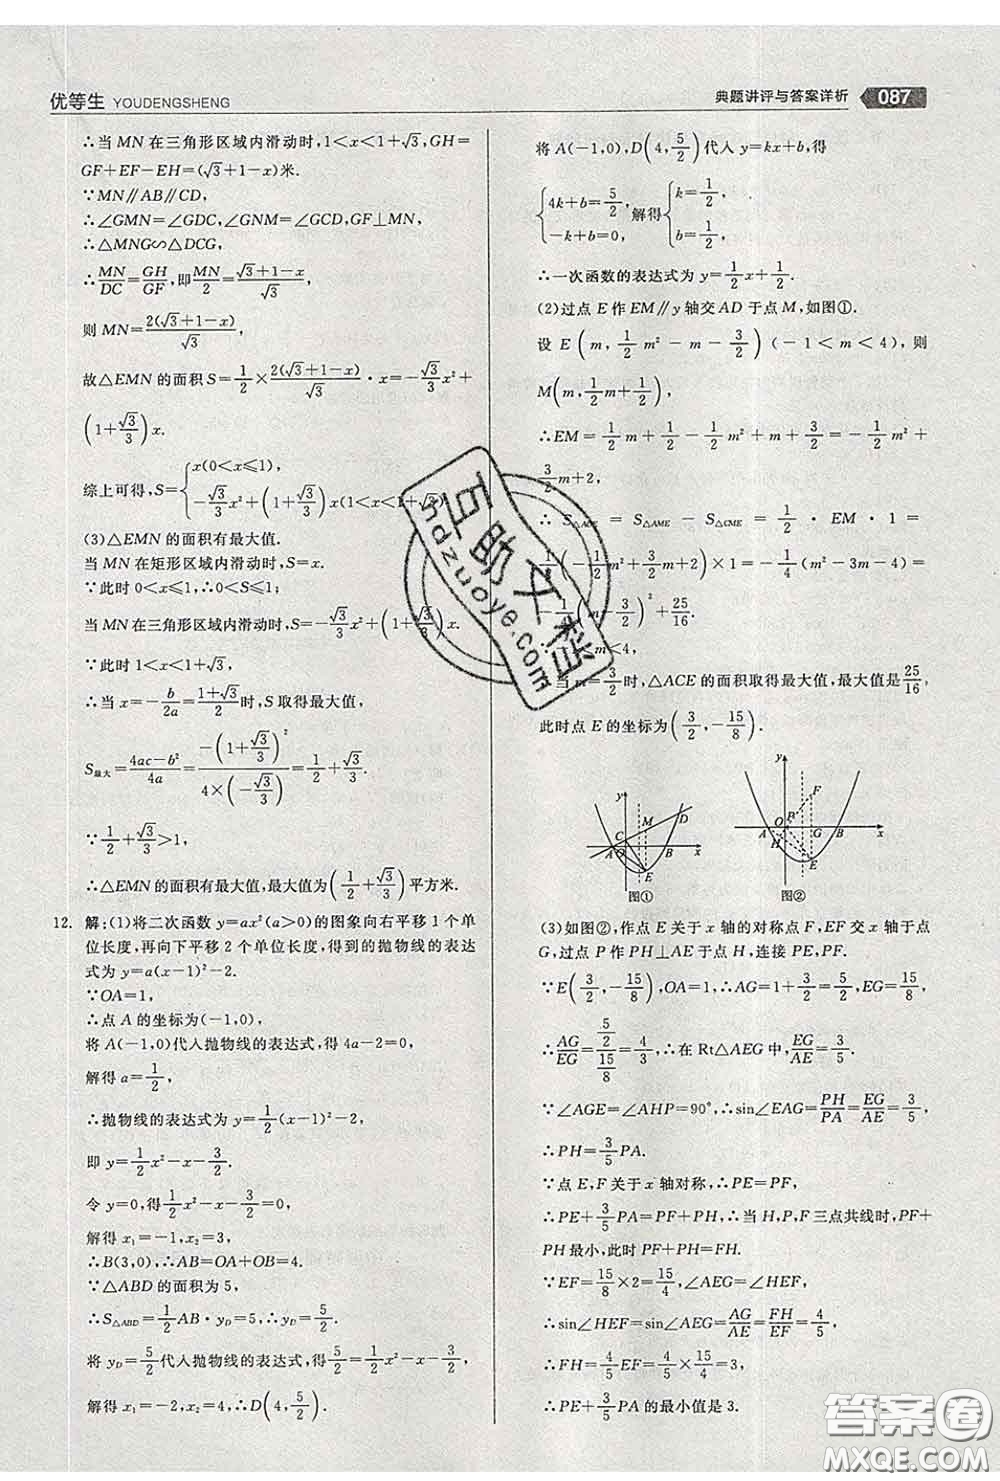 优等生 YOUDENGSHENG
典题讲评与答案详析 087
∴当 MN 在三角形区域内滑动时,1<x<1+√3,GH=
GF+EF-EH=(√3+1-x)米.
∵MN∥AB∥CD,
∴∠GMN=∠GDC,∠GNM=∠GCD,GF⊥MN,
∴△MNG∽△DCG,
∴MN/DC=GH/GF,即MN/2=(√3+1-x)/√3,
则 MN=2(√3+1-x)/√3,
故△EMN 的面积 S=1/2×2(√3+1-x)/√3·x=-√3/3x²+
(1+√3/3)x.
综上可得,S={x(0<x≤1),
-√3/3x²+(1+√3/3)x(1<x<1+√3).
(3)△EMN 的面积有最大值.
当 MN 在矩形区域内滑动时,S=x.
∵此时 0<x≤1,∴0<S≤1;
当 MN 在三角形区域内滑动时,S=-√3/3x²+(1+√3/3)x.
∵此时 1<x<1+√3,
∴当 x=-b/2a=(1+√3)/2时,S 取得最大值,
S最大=(4ac-b²)/4a=-(1+√3/3)²/(4×(-√3/3))=1/2+√3/3.
∵1/2+√3/3>1,
∴△EMN 的面积有最大值,最大值为(1/2+√3/3)平方米.
12. 解:(1)将二次函数 y=ax²(a>0)的图象向右平移 1 个单
位长度,再向下平移 2 个单位长度,得到的抛物线的表达
式为 y=a(x-1)²-2.
∵OA=1,
∴点 A 的坐标为(-1,0),
将 A(-1,0)代入抛物线的表达式,得 4a-2=0,
解得 a=1/2,
∴抛物线的表达式为 y=1/2(x-1)²-2,
即 y=1/2x²-x-3/2.
令 y=0,得1/2x²-x-3/2=0,
解得 x₁=-1,x₂=3,
∴B(3,0),∴AB=OA+OB=4.
∵△ABD 的面积为 5,
∴S△ABD=1/2AB·yD=5,∴yD=5/2.
将 yD=5/2代入抛物线的表达式,得5/2=1/2x²-x-3/2,
解得 x₃=-2,x₄=4,∴D(4,5/2).
将 A(-1,0),D(4,5/2)代入 y=kx+b,得
{4k+b=5/2, 解得{k=1/2,
-k+b=0, b=1/2,
∴一次函数的表达式为 y=1/2x+1/2.
(2)过点 E 作 EM∥y 轴交 AD 于点 M,如图①.
设 E(m,1/2m²-m-3/2)(-1<m<4),则
M(m,1/2m+1/2),
∴EM=1/2m+1/2-1/2m²+m+3/2=-1/2m²+
3/2m+2,
∴S△ACE=S△AME-S△CME=1/2·EM·1=
1/2(-1/2m²+3/2m+2)×1=-1/4(m²-3m-4)=
3/2)²+25/16.
m<4,
当 m=3/2时,△ACE 的面积取得最大值,最大值是25/16,
此时点 E 的坐标为(3/2,-15/8).
y D M C A O B x E
图①
y F O P A G B x H E
图②
(3)如图②,作点 E 关于 x 轴的对称点 F,EF 交 x 轴于点
G,过点 P 作 PH⊥AE 于点 H,连接 PE,PF.
∵E(3/2,-15/8),OA=1,∴AG=1+3/2=5/2,EG=15/8,
∴AG/EG=(5/2)/(15/8)=4/3,∴在 Rt△AEG 中,EG/AE=3/5.
∵∠AGE=∠AHP=90°,∴sin∠EAG=PH/PA=EG/AE=3/5,
∴PH=3/5PA.
∵点 E,F 关于 x 轴对称,∴PE=PF,
∴PE+3/5PA=PF+PH,∴当 H,P,F 三点共线时,PF+
PH 最小,此时 PF+PH=FH.
∵EF=15/8×2=15/4,∠AEG=∠HEF,
∴sin∠HEF=sin∠AEG=AG/AE=FH/EF=4/5,
∴FH=4/5EF=4/5×15/4=3,
∴PE+3/5PA 的最小值是 3.
互助文档
hdzuoye.com
答案圈
MXQE.COM